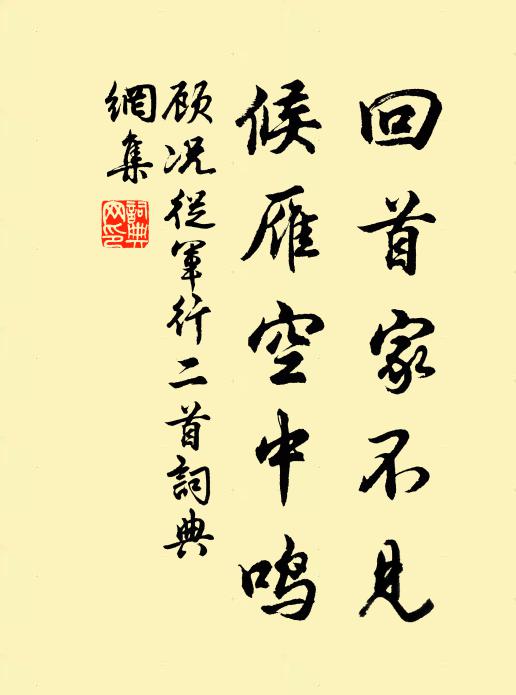 回首家不见
候雁空中鸣
顾况從軍行二首詞典
網集
詞典
网印